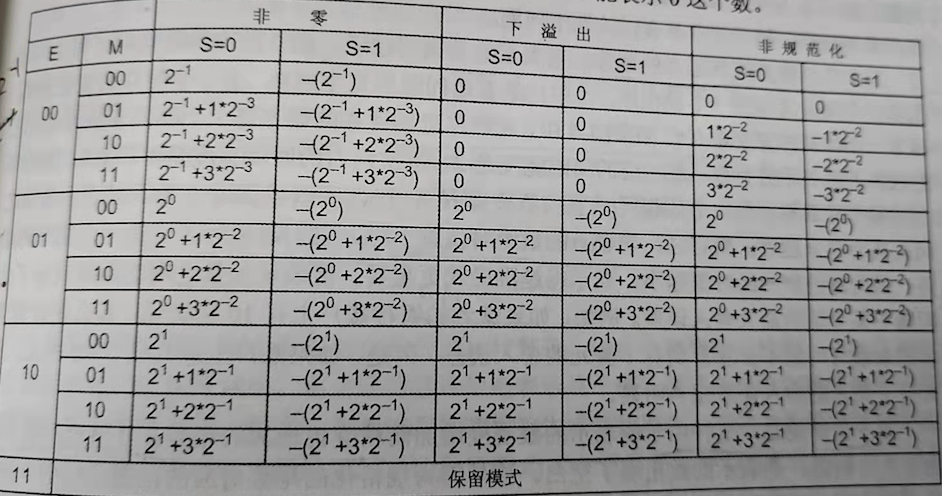 表示0这个数。
非 零 下 溢 出 非 规 范 化
E M S=0 S=1 S=0 S=1 S=0 S=1
00 00 2⁻¹ –(2⁻¹) 0 0 0 0
01 2⁻¹+1*2⁻³ –(2⁻¹+1*2⁻³) 0 0 1*2⁻² –1*2⁻²
10 2⁻¹+2*2⁻³ –(2⁻¹+2*2⁻³) 0 0 2*2⁻² –2*2⁻²
11 2⁻¹+3*2⁻³ –(2⁻¹+3*2⁻³) 0 0 3*2⁻² –3*2⁻²
01 00 2⁰ –(2⁰) 2⁰ –(2⁰) 2⁰ –(2⁰)
01 2⁰+1*2⁻² –(2⁰+1*2⁻²) 2⁰+1*2⁻² –(2⁰+1*2⁻²) 2⁰+1*2⁻² –(2⁰+1*2⁻²)
10 2⁰+2*2⁻² –(2⁰+2*2⁻²) 2⁰+2*2⁻² –(2⁰+2*2⁻²) 2⁰+2*2⁻² –(2⁰+2*2⁻²)
11 2⁰+3*2⁻² –(2⁰+3*2⁻²) 2⁰+3*2⁻² –(2⁰+3*2⁻²) 2⁰+3*2⁻² –(2⁰+3*2⁻²)
10 00 2¹ –(2¹) 2¹ –(2¹) 2¹ –(2¹)
01 2¹+1*2⁻¹ –(2¹+1*2⁻¹) 2¹+1*2⁻¹ –(2¹+1*2⁻¹) 2¹+1*2⁻¹ –(2¹+1*2⁻¹)
10 2¹+2*2⁻¹ –(2¹+2*2⁻¹) 2¹+2*2⁻¹ –(2¹+2*2⁻¹) 2¹+2*2⁻¹ –(2¹+2*2⁻¹)
11 2¹+3*2⁻¹ –(2¹+3*2⁻¹) 2¹+3*2⁻¹ –(2¹+3*2⁻¹) 2¹+3*2⁻¹ –(2¹+3*2⁻¹)
11 保留模式